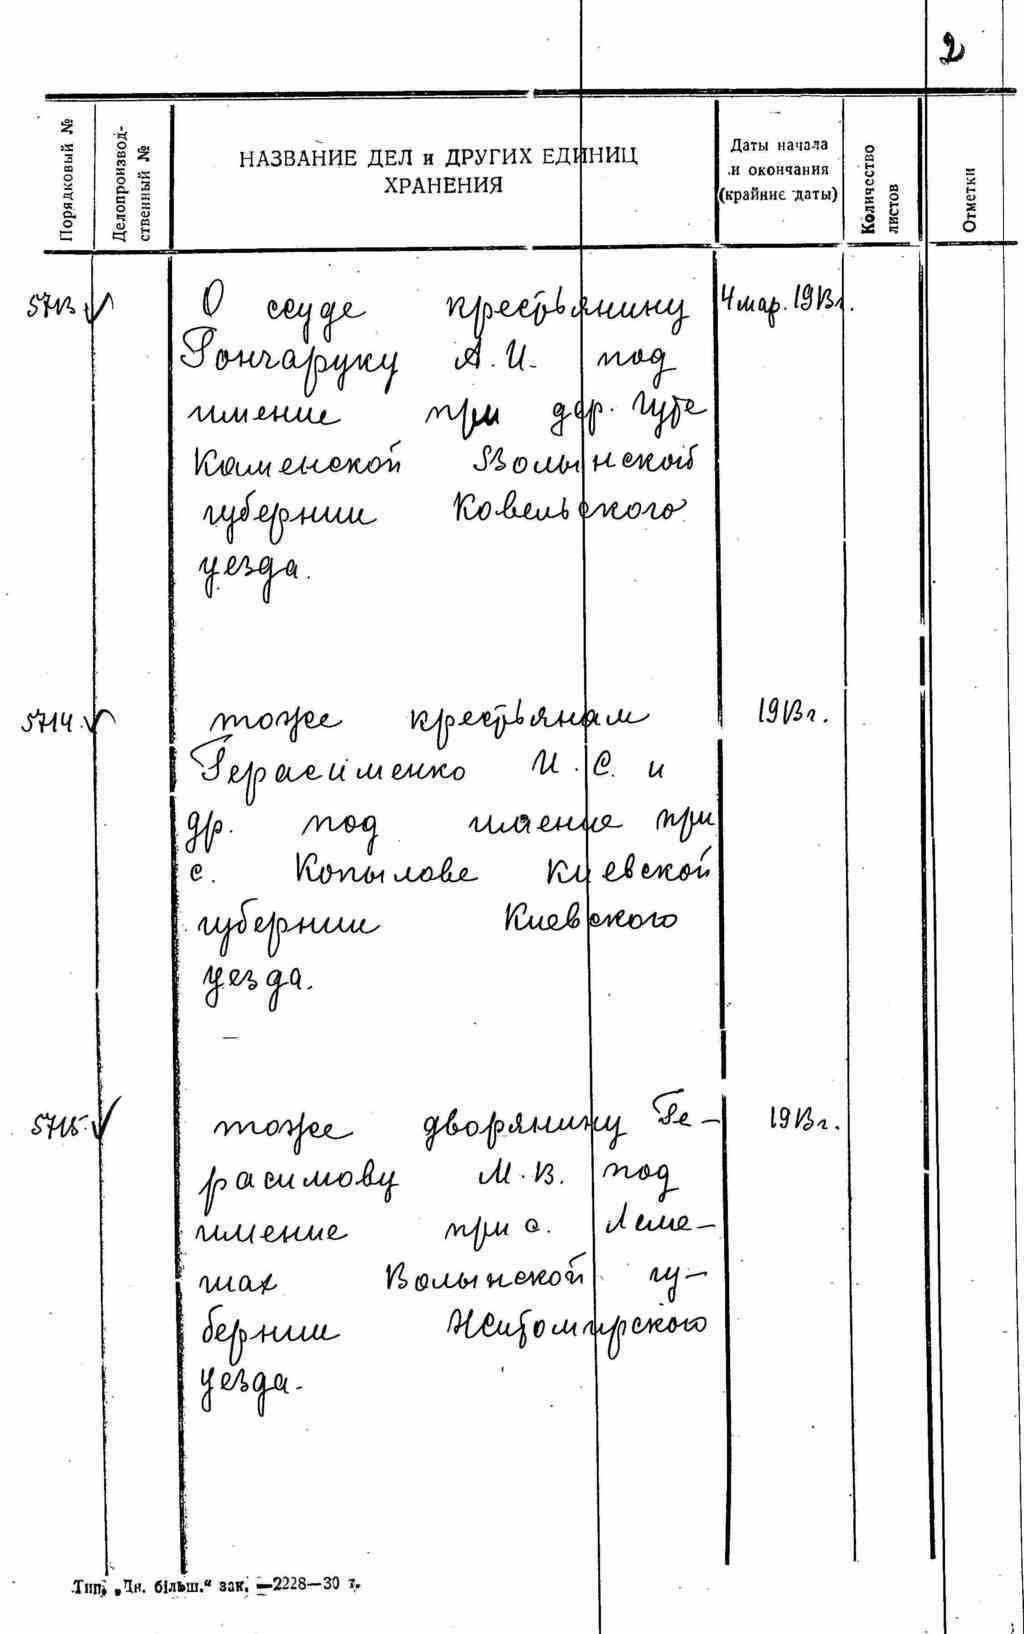 2
Порядковый №
Делопроизвод-
ственный №
НАЗВАНИЕ ДЕЛ и ДРУГИХ ЕДИНИЦ
ХРАНЕНИЯ
Даты начала
и окончания
(крайние даты)
Количество
листов
Отметки
5713 О ссуде крестьянину 4 мар. 1913г.
Гончаруку А.И. под
имение при дер. Гуте
Каменской Волынской
губернии Ковельского
уезда.
5714. тоже крестьянам 1913г.
Герасименко И.С. и
др. под имение при
с. Копылове Киевской
губернии Киевского
уезда.
5715. тоже дворянину Ге- 1913г.
расимову М.В. под
имение при с. Леме-
шах Волынской гу-
бернии Житомирского
уезда.
Тип. „Дн. більш.“ зак. —2228—30 т.